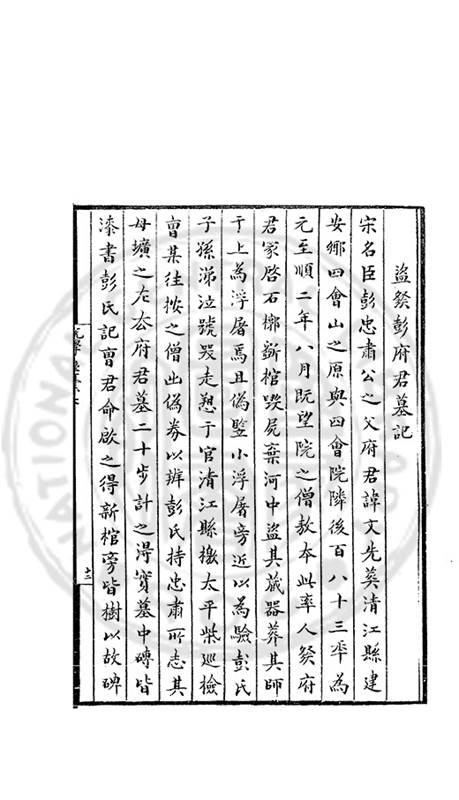 盜發彭府君墓記
宋名臣彭忠肅公之父府君諱文先葬清江縣建
安鄉四會山之原與四會院隣後百八十三年為
元至順二年八月既望院之僧敖本此率人發府
君冢啓石槨斵棺毀屍棄河中盜其葳器葬其師
于上為浮屠焉且偽竪小浮屠旁近以為驗彭氏
子孫涕泣號哭走愬于官清江縣檄太平柴巡檢
曺某往按之僧出偽券以辨彭氏持忠肅所志其
母壙之左去府君墓二十步計之得實墓中磚皆
漆書彭氏記曺君命啟之得新棺旁皆樹以故碑
十二
NATIONAL